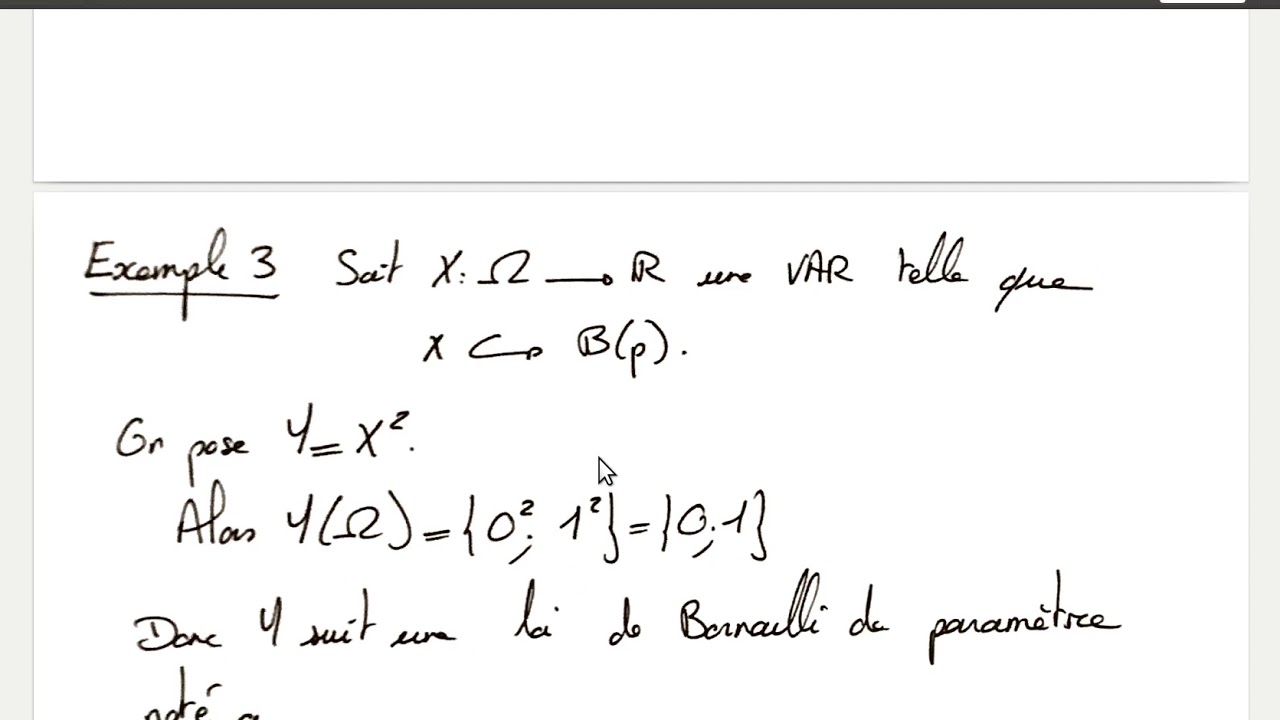 Exemple 3 Soit X: Ω → ℝ une VAR telle que
X ↪ B(p).
On pose Y = X².
Alors Y(Ω) = {0²; 1²} = {0; 1}
Donc Y suit une loi de Bernoulli de paramètre
noté